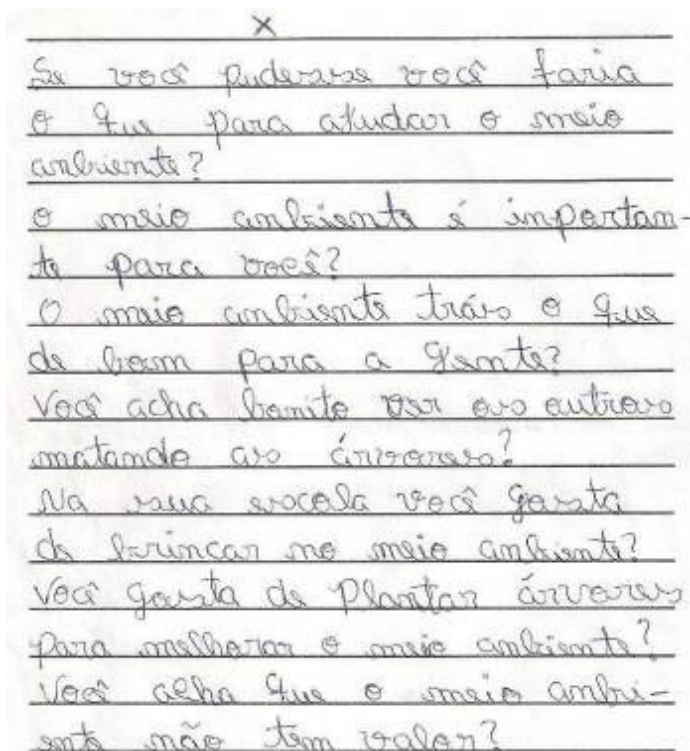 x
Se você pudesse você faria
o que para ajudar o meio
anbiente?
o meio anbiente é inportan-
te para você?
O meio anbiente tráis o que
de bom para a gente?
Você acha bonito ver os outros
matando as árvores?
Na sua escola você gosta
de brincar no meio anbiente?
Você gosta de Plantar árvores
para melhorar o meio anbiente?
Você acha que o meio anbri-
ente não tem valor?